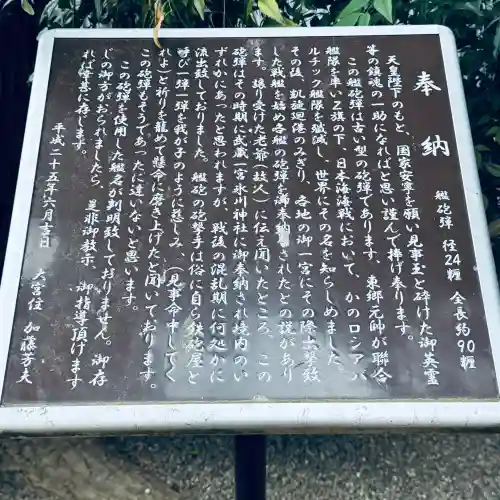 奉納
艦砲弾 径24糎 全長約90糎
天皇陛下のもと、国家安寧を願い見事玉と砕けた御英霊
等の鎮魂の一助になればと思い謹んで捧げ奉ります。
この砲弾は古い型の砲弾であります。東郷元帥が聯合
艦隊を率いZ旗の下、日本海海戦において、かのロシアバ
ルチック艦隊を殲滅し、世界にその名を知らしめました。
その後、凱旋廻港のみぎり、各地の御一宮にその際出撃致
した戦艦を始め各艦の砲弾を御奉納されたとの説があり
ます。譲り受けた老爺(故人)に伝え聞いたところ、この
砲弾はその時期に武蔵一宮氷川神社に御奉納され境内のい
ずれかにあったと思われますが、戦後の混乱期に何処かに
流出致しておりました。艦砲の砲撃手は俗に自ら鉄砲屋と
呼び一弾一弾を我が子のように慈しみ、「見事命中してく
れよ」と祈りを籠めて懸命に磨き上げたと聞いております。
この砲弾もそうであったに違いないと思います。
この砲弾を使用した艦名が判明致しておりません。御存
じの御方がおられましたら、是非御教示、御指導頂けます
れば幸甚に存じます。
平成二十五年六月吉日 大宮住 加藤芳夫